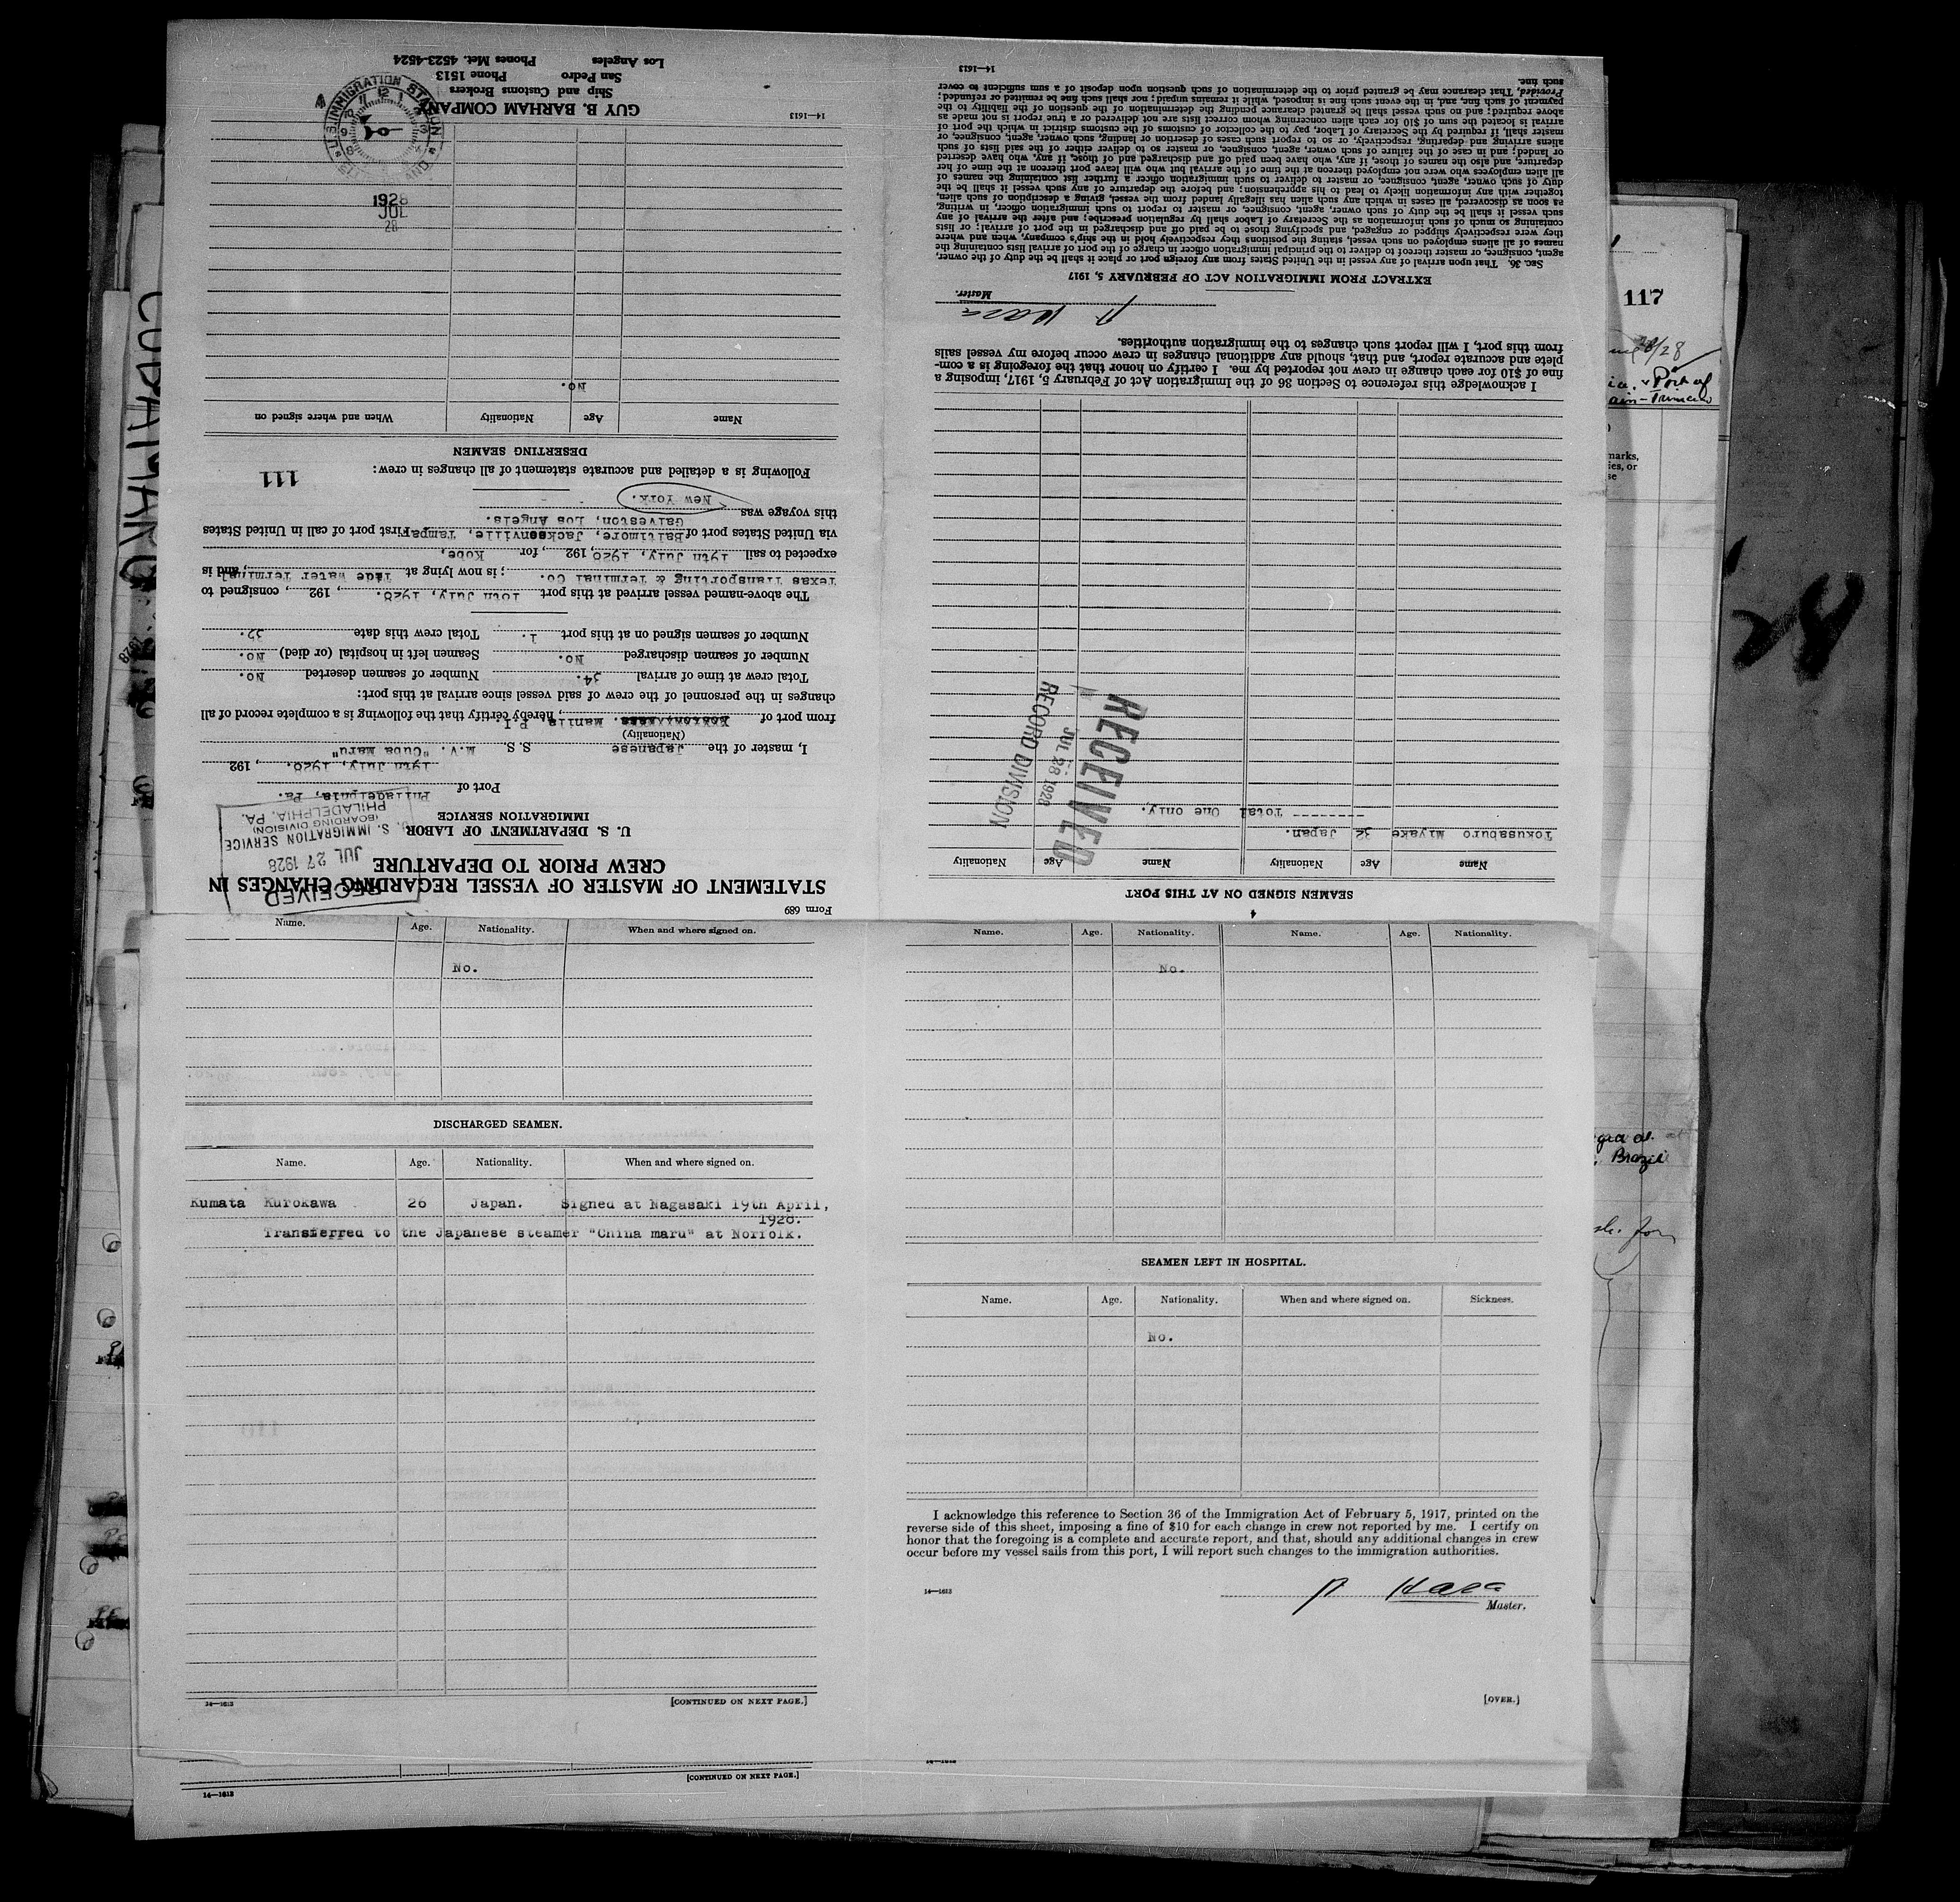 Form 689
STATEMENT OF MASTER OF VESSEL REGARDING CHANGES IN
CREW PRIOR TO DEPARTURE
U. S. DEPARTMENT OF LABOR
IMMIGRATION SERVICE
RECEIVED
JUL 27 1928
U. S. IMMIGRATION SERVICE
(BOARDING DIVISION)
PHILADELPHIA, PA.
Port of Philadelphia, Pa.
19th July, 1928. , 192
I, master of the Japanese S.S. M.V. "Cuba Maru"
(Nationality)
from port of Manila P.I. , hereby certify that the following is a complete record of all
changes in the personnel of the crew of said vessel since arrival at this port:
Total crew at time of arrival 34. Number of seamen deserted No.
Number of seamen discharged No. Seamen left in hospital (or died) No.
Number of seamen signed on at this port 1. Total crew this date
The above-named vessel arrived at this port 18th July, 1928. , 192 , consigned to
Texas Transporting & Terminal Co. ; is now lying at Tide Water Terminal , and is
expected to sail 19th July, 1928 , 192 , for Kobe,
via United States port of Baltimore, Jacksonville, Tampa First port of call in United States
Galveston, Los Angels.
this voyage was New York.
Following is a detailed and accurate statement of all changes in crew:
111
DESERTING SEAMEN
Name Age Nationality When and where signed on
No.
1928
JUL
28
U.S. IMMIGRATION STATION
14—1613
GUY B. BARHAM COMPANY
Ship and Customs Brokers
San Pedro Phone 1513
Los Angeles Phones Met. 4523-4524
SEAMEN SIGNED ON AT THIS PORT
Name Age Nationality Name Age Nationality
Tokusaburo Miyake 32 Japan.
--------- Total One only.
RECEIVED
JUL 28 1928
RECORD DIVISION
I acknowledge this reference to Section 36 of the Immigration Act of February 5, 1917, imposing a
fine of $10 for each change in crew not reported by me. I certify on honor that the foregoing is a com-
plete and accurate report, and that, should any additional changes in crew occur before my vessel sails
from this port, I will report such changes to the immigration authorities.
Hara
Master.
EXTRACT FROM IMMIGRATION ACT OF FEBRUARY 5, 1917
Sec. 36. That upon arrival of any vessel in the United States from any foreign port or place it shall be the duty of the owner,
agent, consignee, or master thereof to deliver to the principal immigration officer in charge of the port of arrival lists containing the
names of all aliens employed on such vessel, stating the positions they respectively hold in the ship's company, when and where
they were respectively shipped or engaged, and specifying those to be paid off and discharged in the port of arrival; or lists
containing so much of such information as the Secretary of Labor shall by regulation prescribe; and after the arrival of any
such vessel it shall be the duty of such owner, agent, consignee, or master to report to such immigration officer, in writing,
as soon as discovered, all cases in which any such alien has illegally landed from the vessel, giving a description of such alien,
together with any information likely to lead to his apprehension; and before the departure of any such vessel it shall be the
duty of such owner, agent, consignee, or master to deliver to such immigration officer a further list containing the names of
all alien employees who were not employed thereon at the time of the arrival but who will leave port thereon at the time of her
departure, and also the names of those, if any, who have been paid off and discharged and of those, if any, who have deserted
or landed; and in case of the failure of such owner, agent, consignee, or master so to deliver either of the said lists of such
aliens arriving and departing, respectively, or so to report such cases of desertion or landing, such owner, agent, consignee, or
master shall, if required by the Secretary of Labor, pay to the collector of customs of the customs district in which the port of
arrival is located the sum of $10 for each alien concerning whom correct lists are not delivered or a true report is not made as
above required; and no such vessel shall be granted clearance pending the determination of the question of the liability to the
payment of such fine, and, in the event such fine is imposed, while it remains unpaid; nor shall such fine be remitted or refunded;
Provided, That clearance may be granted prior to the determination of such question upon deposit of a sum sufficient to cover
such fine.
14—1613
Name. Age. Nationality. When and where signed on.
No.
DISCHARGED SEAMEN.
Name. Age. Nationality. When and where signed on.
Kumata Kurokawa 26 Japan. Signed at Nagasaki 19th April,
1928.
Transferred to the Japanese steamer "China maru" at Norfolk.
14—1613
[CONTINUED ON NEXT PAGE.]
Name. Age. Nationality. Name. Age. Nationality.
No.
SEAMEN LEFT IN HOSPITAL.
Name. Age. Nationality. When and where signed on. Sickness.
No.
I acknowledge this reference to Section 36 of the Immigration Act of February 5, 1917, printed on the
reverse side of this sheet, imposing a fine of $10 for each change in crew not reported by me. I certify on
honor that the foregoing is a complete and accurate report, and that, should any additional changes in crew
occur before my vessel sails from this port, I will report such changes to the immigration authorities.
14—1613
Hara
Master.
[OVER.]
[CONTINUED ON NEXT PAGE.]
14—1613
117
28/28
Port of
marks,
Brazil
for
28
CUBA MARU
1928